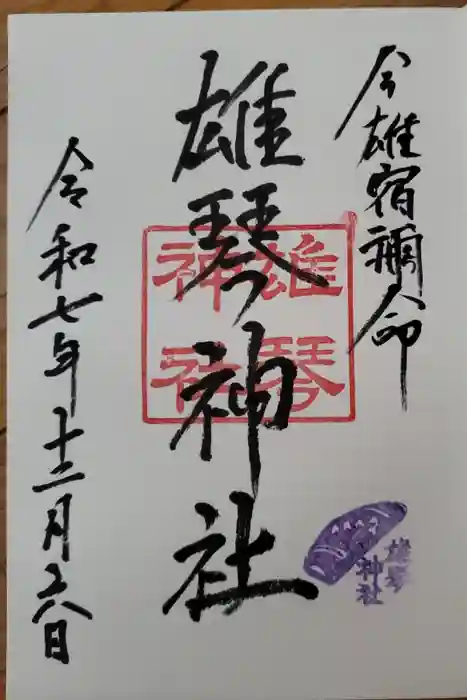 今雄宿禰命
雄琴神社
雄琴
神社
雄琴
神社
令和七年十二月二八日